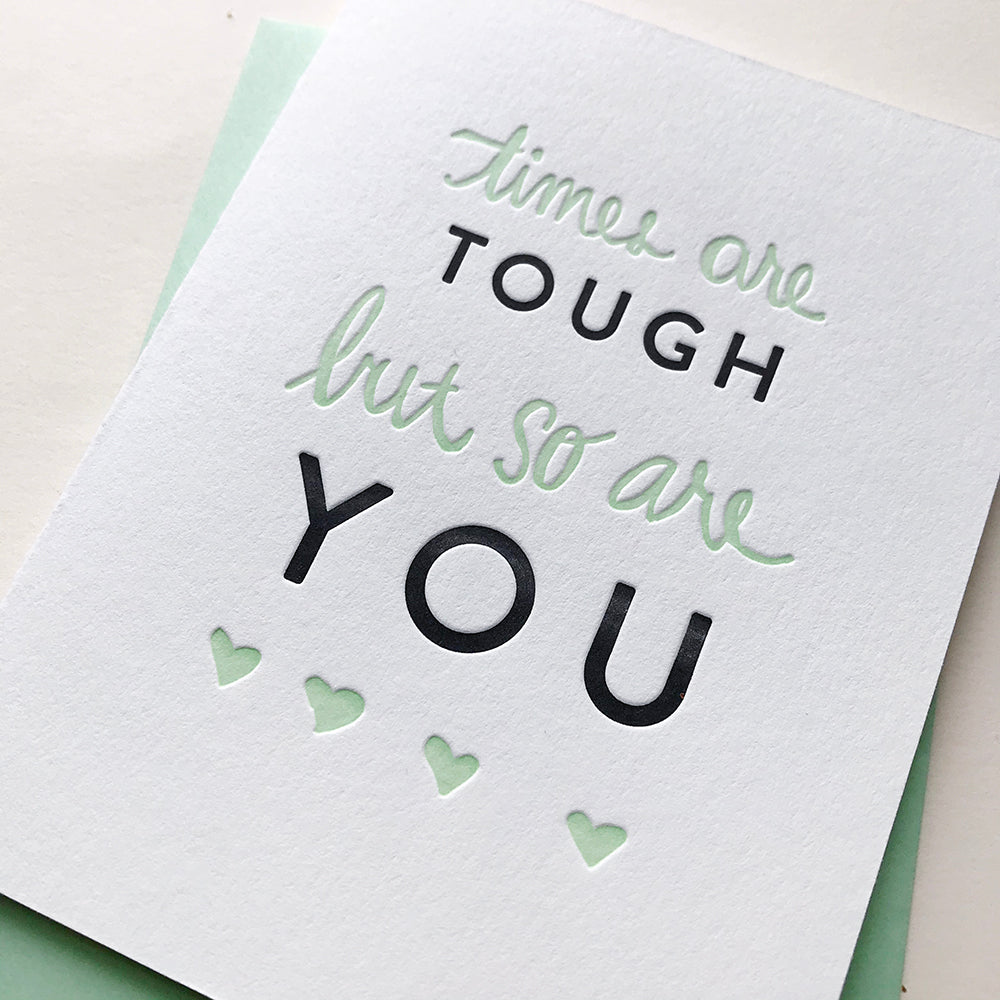 times are
TOUGH
but so are
YOU